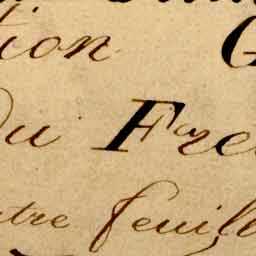 tion G
Du Fre
tre feuil